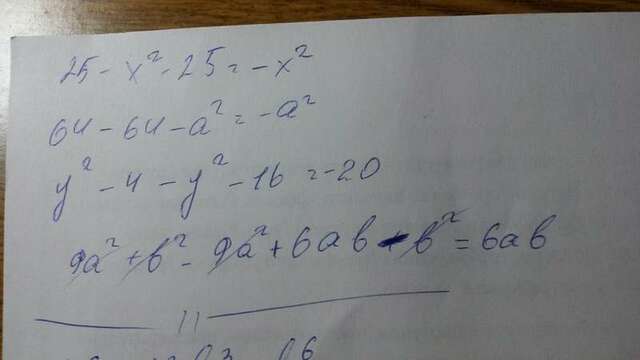 25 - x² - 25 = -x²
64 - 64 - a² = -a²
y² - 4 - y² - 16 = -20
9a² + b² - 9a² + 6ab - b² = 6ab